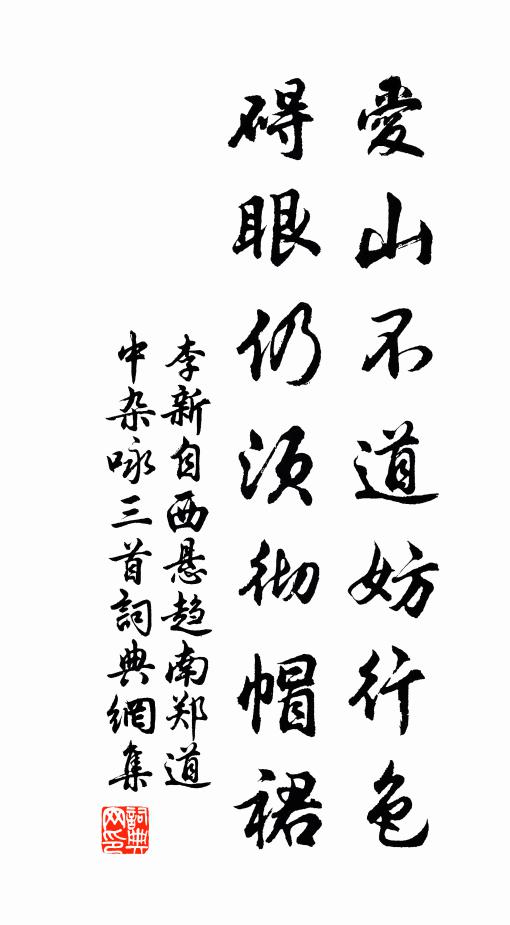 愛山不道妨行色
碍眼仍须彻帽裙
李新自西悬趋南郑道
中杂咏三首詞典網集
詞典
网印